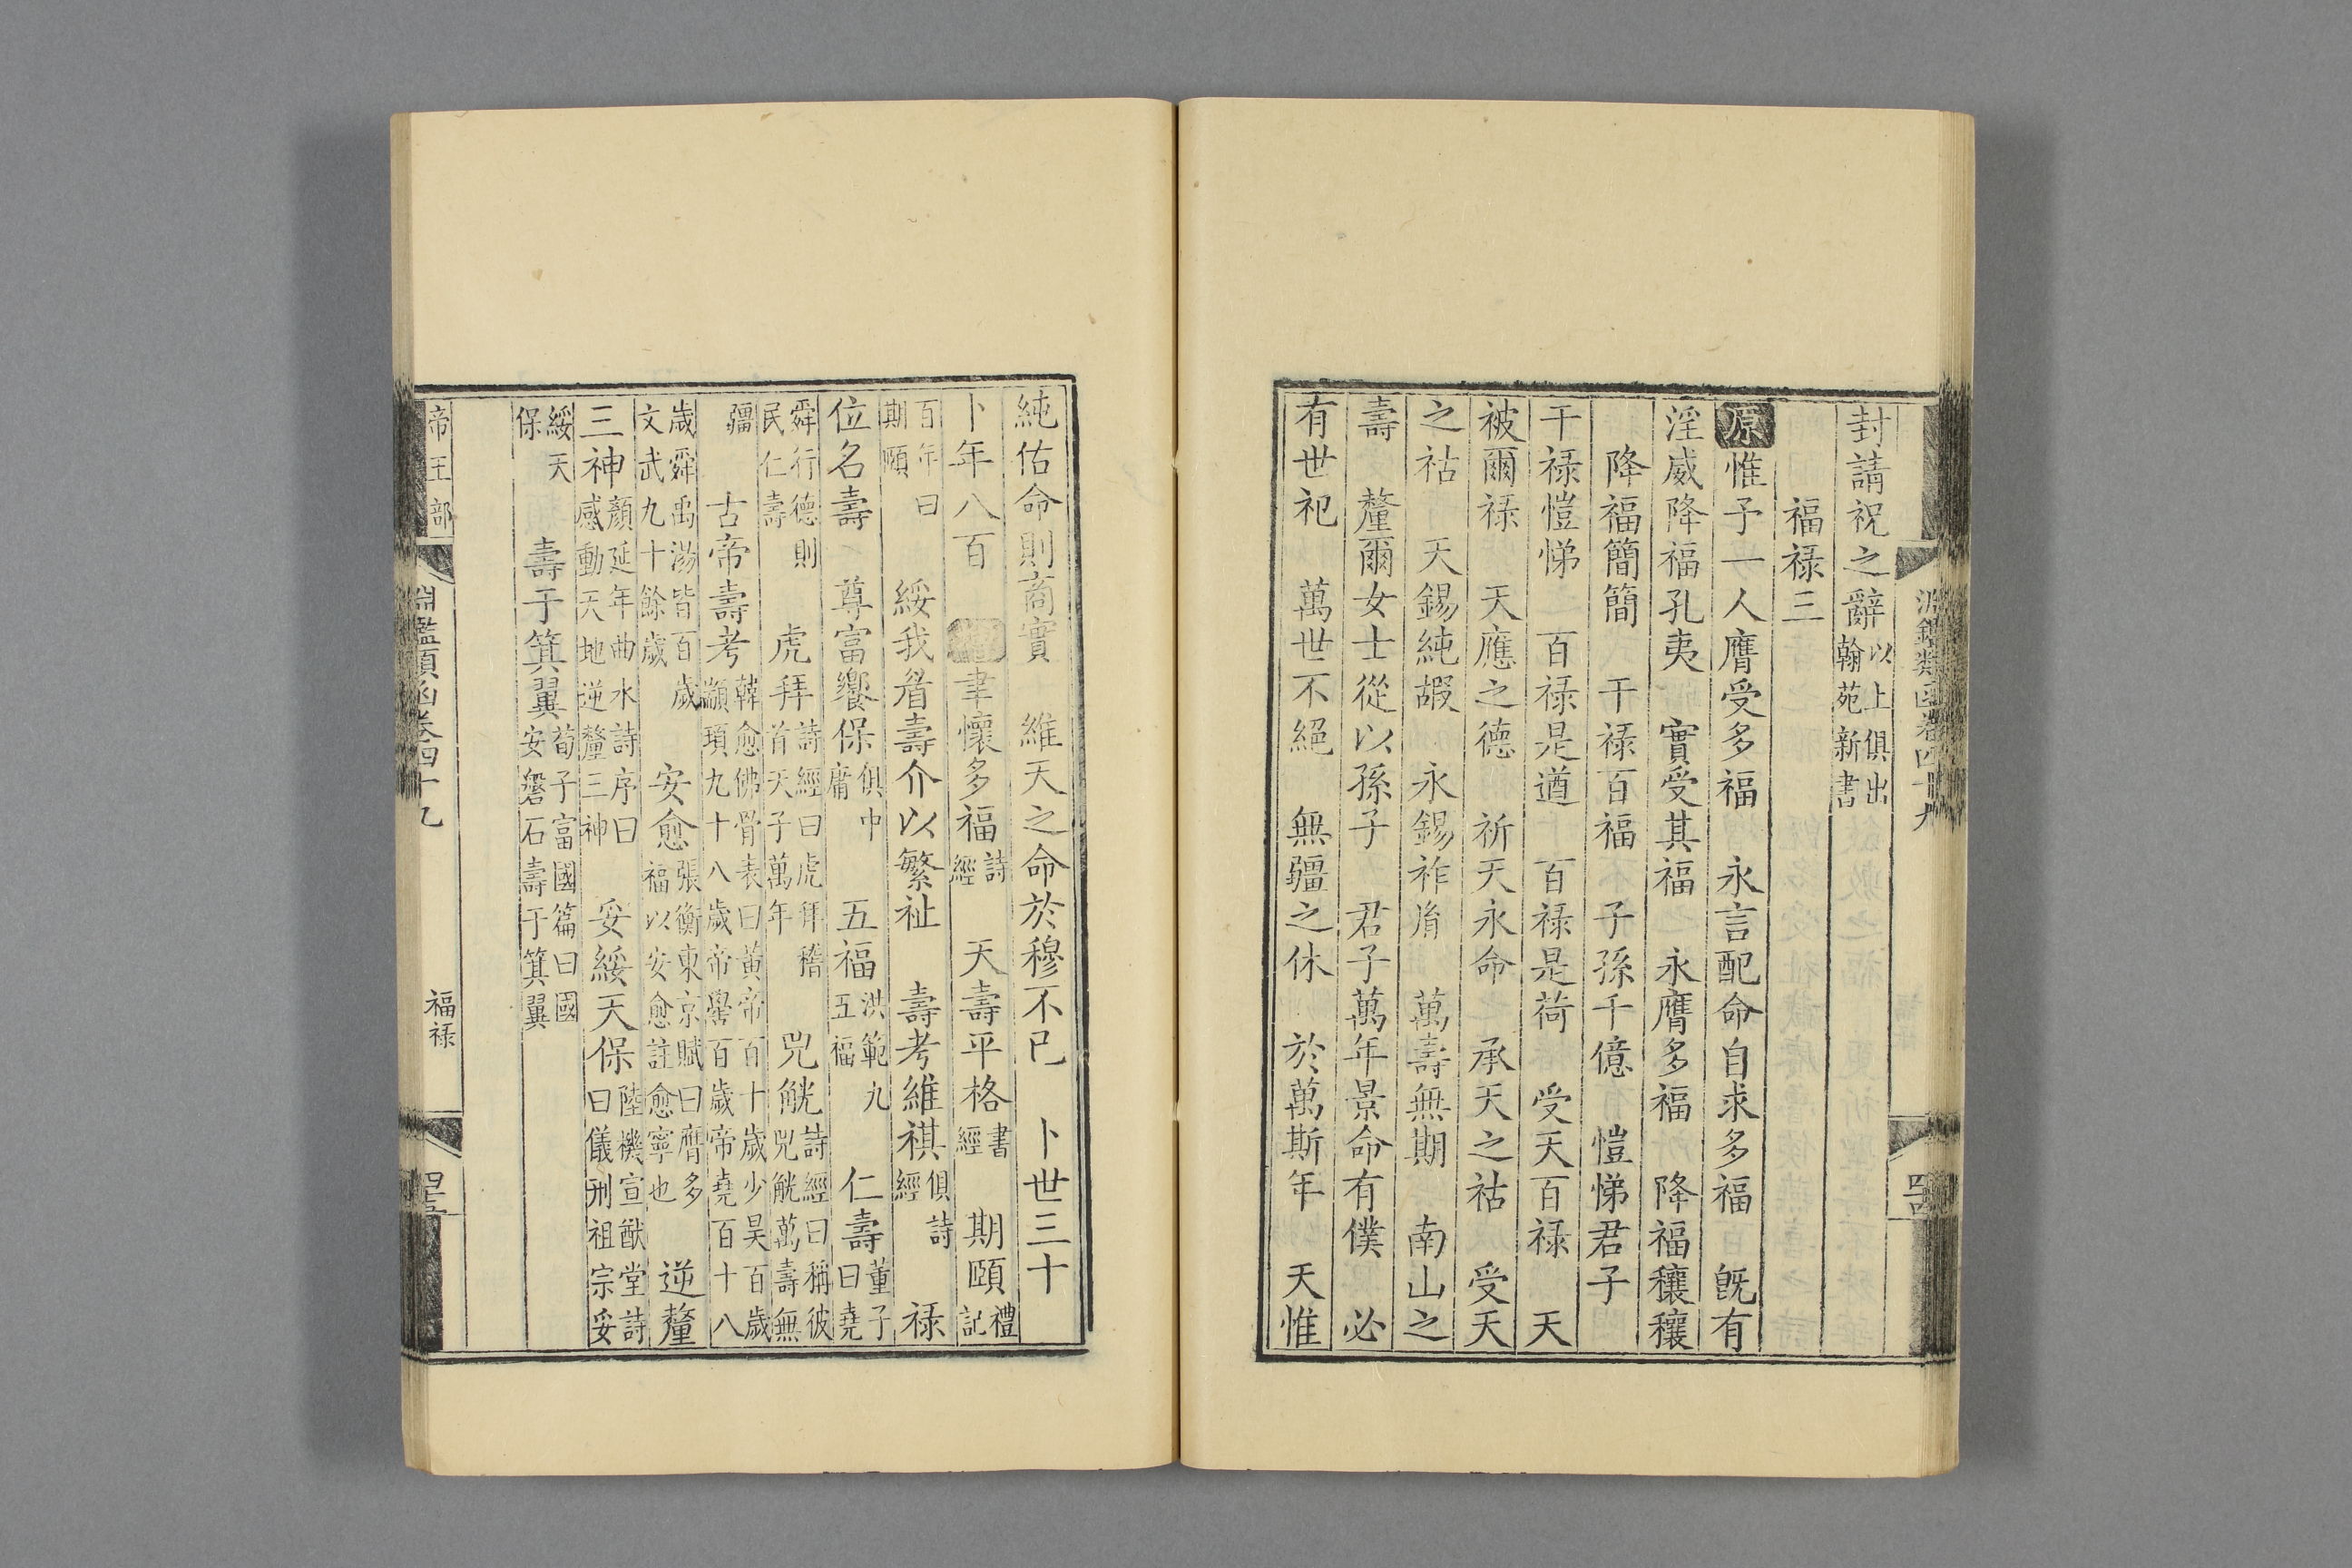 封請祝之辭以上俱出翰苑新書
福禄三
原惟予一人膺受多福 永言配命自求多福 旣有
淫威降福孔夷 實受其福 永膺多福 降福穰穰
降福簡簡 干禄百福 子孫千億 愷悌君子
干禄愷悌 百禄是遒 百禄是荷 受天百禄 天
被爾禄 天應之德 祈天永命 承天之祜 受天
之祜 天錫純嘏 永錫祚胤 萬壽無期 南山之
壽 釐爾女士從以孫子 君子萬年景命有僕 必
有世祀 萬世不絕 無疆之休 於萬斯年 天惟
純佑命則商實 維天之命於穆不已 卜世三十
卜年八百 聿懷多福詩經 天壽平格書經 期頤禮記
百年曰期頤 綏我眉壽介以繁祉 壽考維祺俱詩經 禄
位名壽 尊富饗保俱中庸 五福洪範九五福 仁壽董子曰堯
舜行德則民仁壽 虎拜詩經曰虎拜稽首天子萬年 兕觥詩經曰稱彼兕觥萬壽無
疆 古帝壽考韓愈佛骨表曰黄帝百十歲少昊百歲顓頊九十八歲帝嚳百歲帝堯百十八
歲舜禹湯皆百歲文武九十餘歲 安愈張衡東京賦曰膺多福以安愈註愈寧也 逆釐
三神顏延年曲水詩序曰感動天地逆釐三神 妥綏天保陸機宣猷堂詩曰儀刑祖宗妥
綏天保 壽于箕翼荀子富國篇曰國安磐石壽于箕翼
帝王部
淵鑑類函卷四十九
福禄